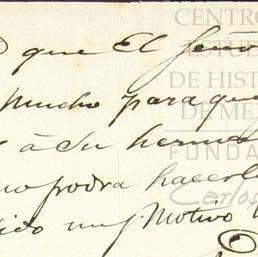 que El Seño
Mucho para que
à Su herma
no podra hacerl
un Motivo
CENTRO
ESTUD
DE HIST
DE ME
FUNDA
Carlos